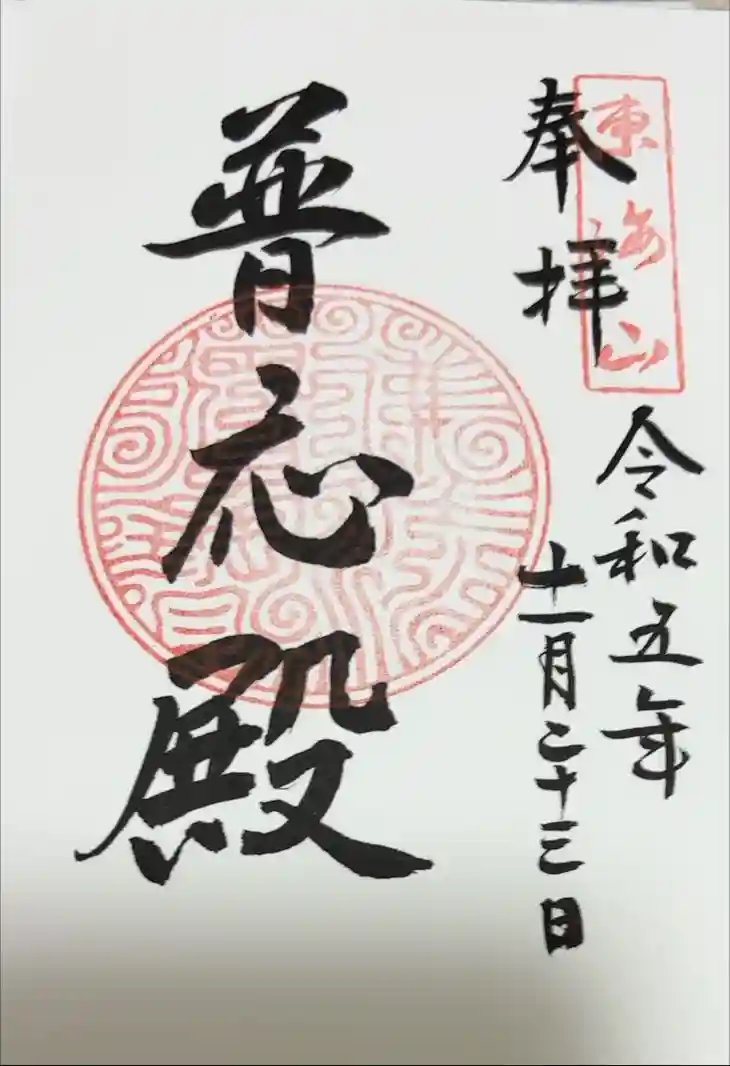 東海山
奉拝
令和五年
十一月二十三日
普応殿